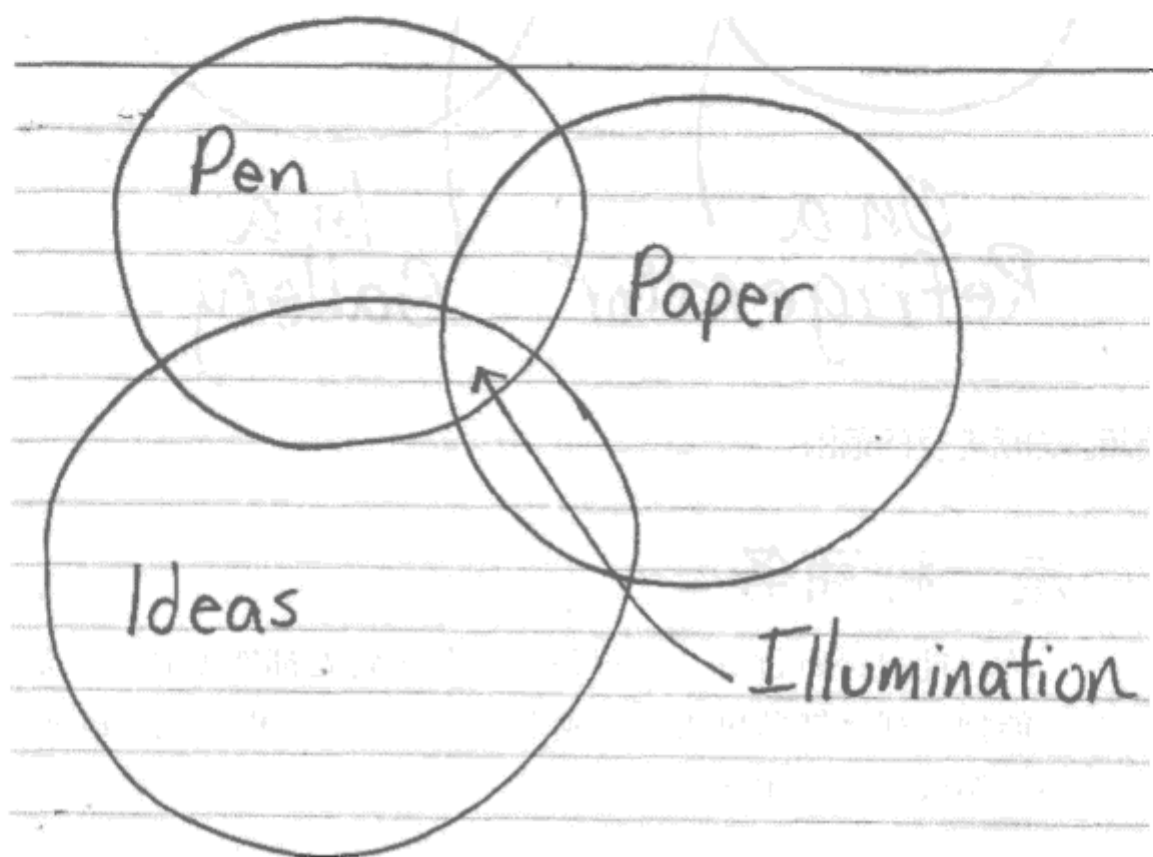 Pen
Paper
Ideas
Illumination